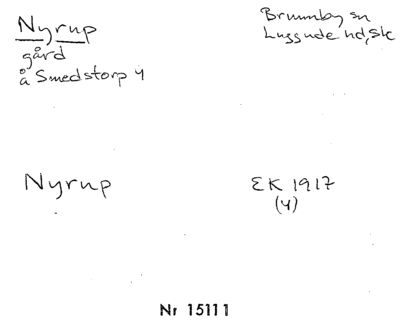 Nyrup
gård
å Smedstorp 4
Brunnby sn
Luggude hd, Sk
Nyrup
EK 1917
(4)
Nr 15111